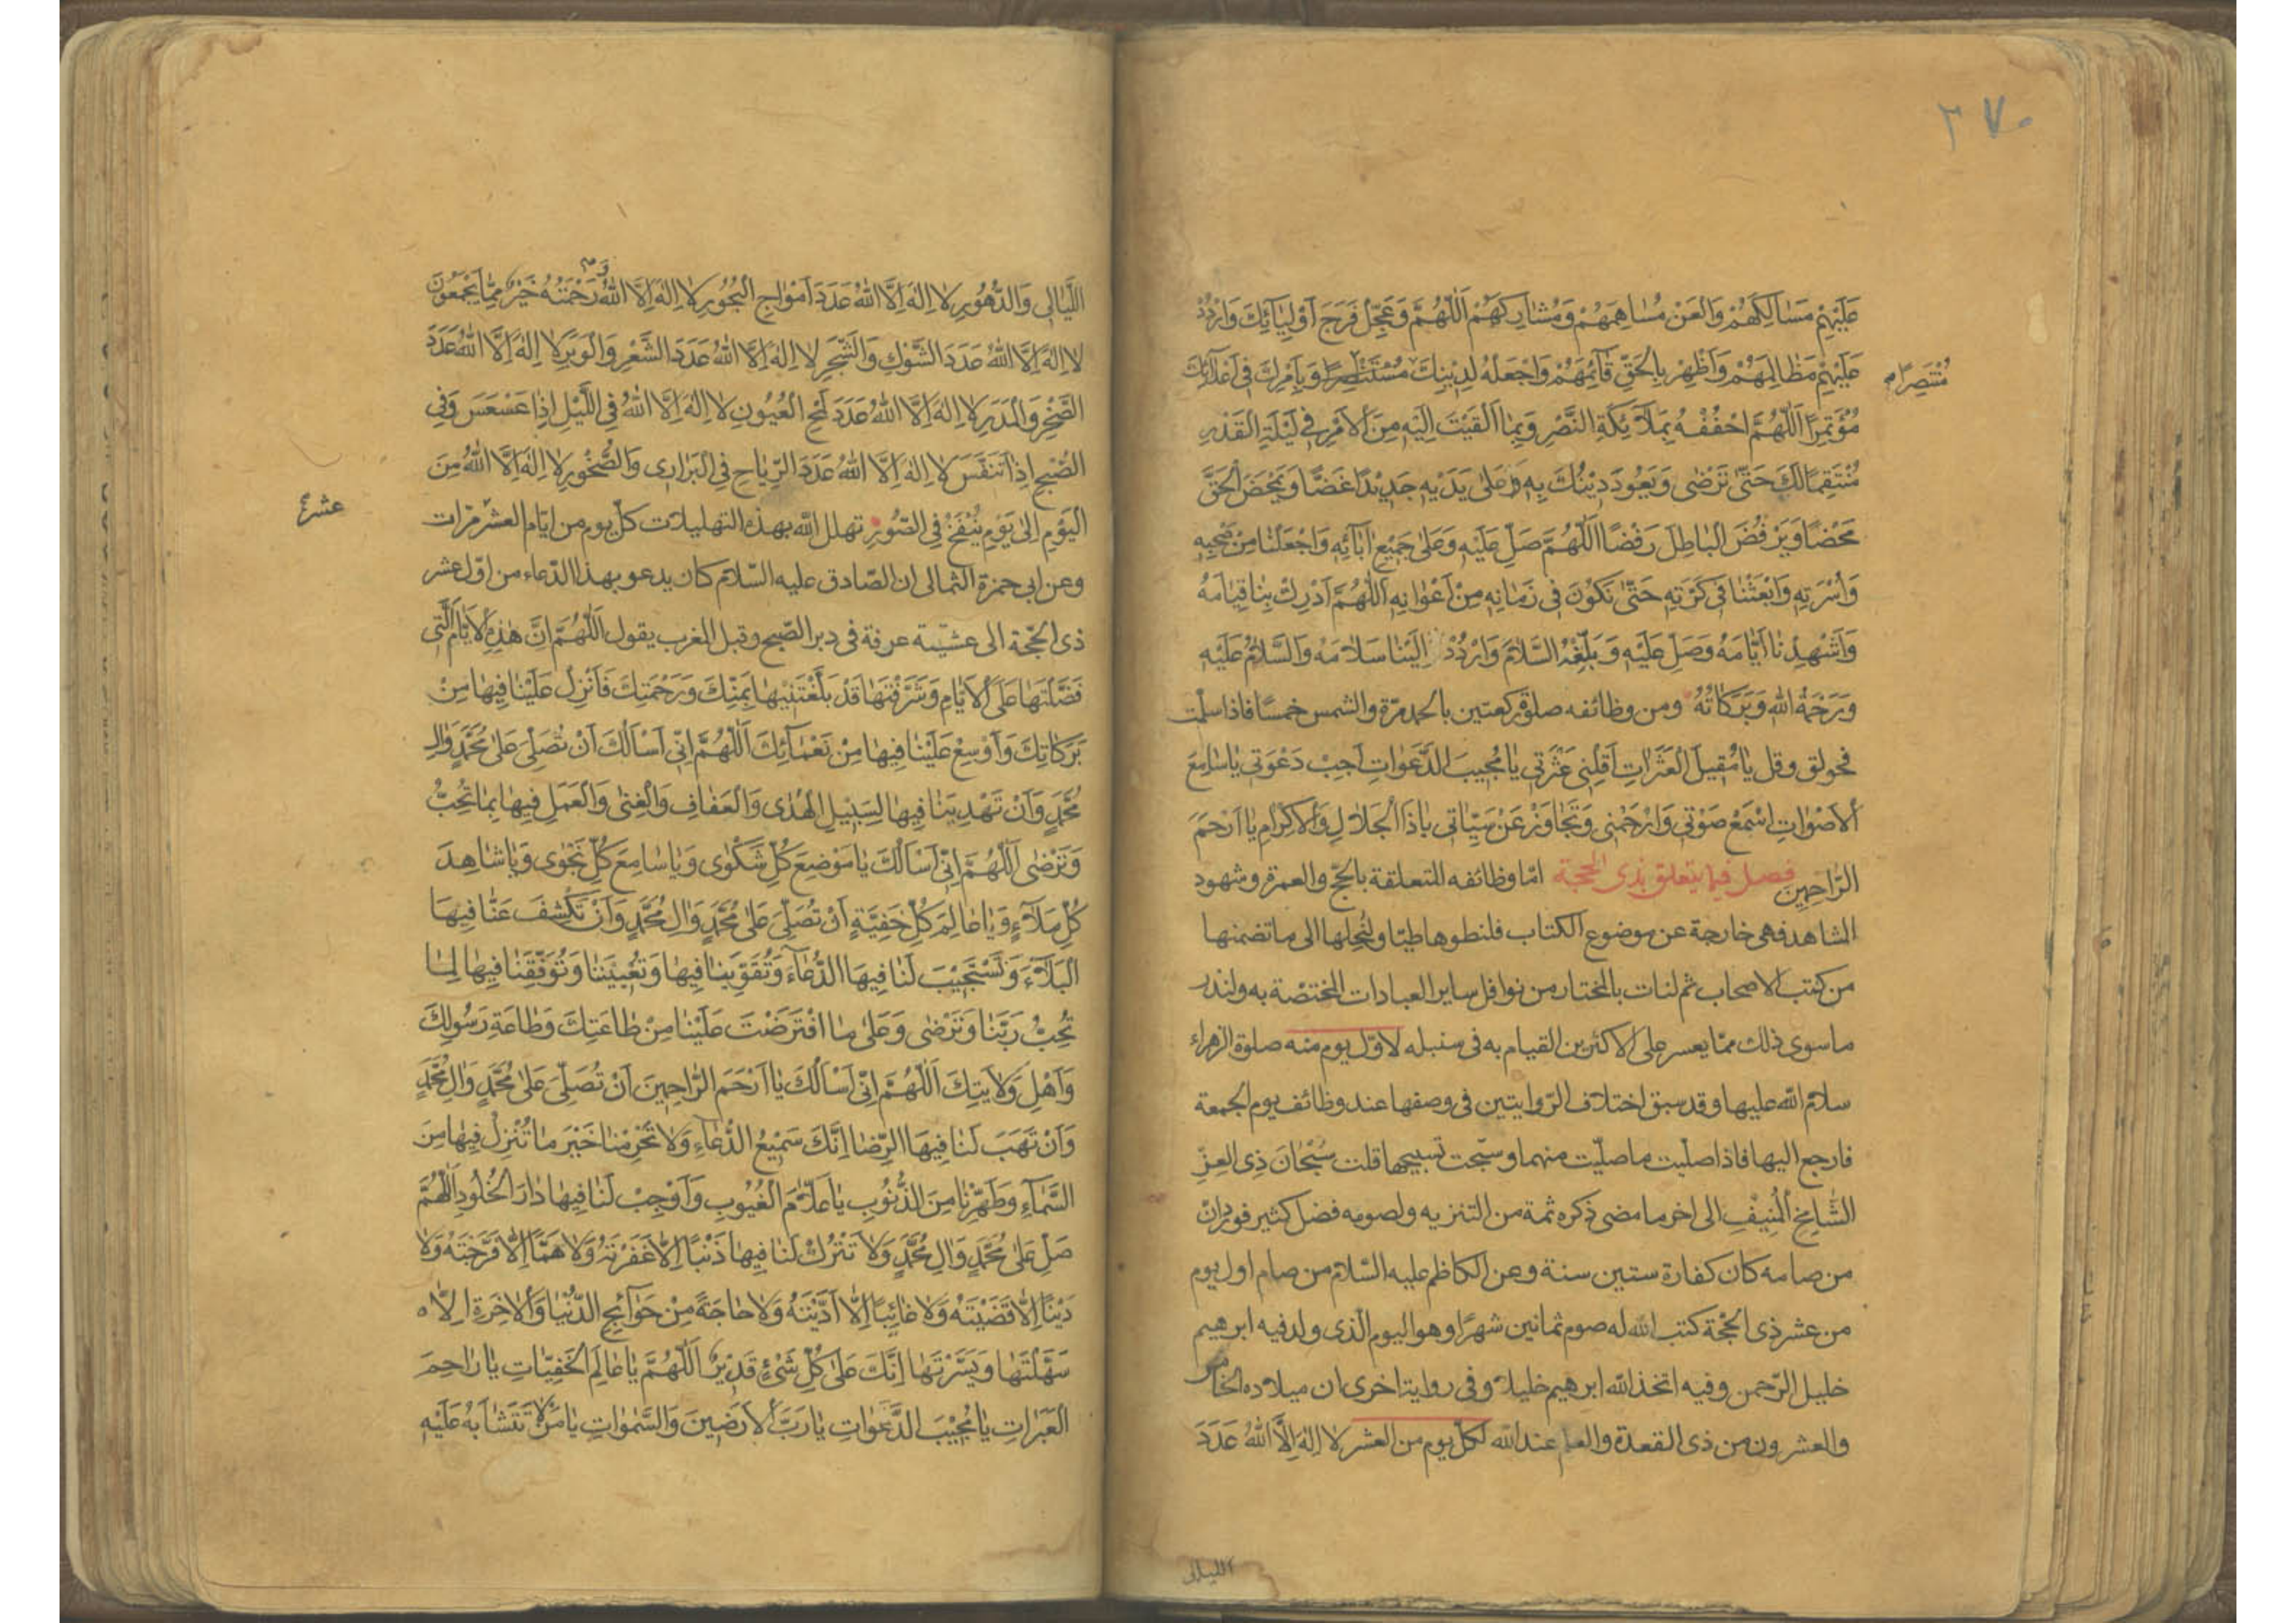 ٣٧٠
عَلَيْهِمْ مَسَالِكَهُمْ وَالْعَنْ مُسَاهِمَهُمْ وَمُشَارِكَهُمْ اَللّٰهُمَّ وَعَجِّلْ فَرَجَ اَوْلِيَائِكَ وَارْدُدْ
عَلَيْهِمْ مَظَالِمَهُمْ وَاَظْهِرْ بِالْحَقِّ قَائِمَهُمْ وَاجْعَلْهُ لِدِيْنِكَ مُسْتَنْصِرًا وَبِاَمْرِكَ فِي اَعْدَائِكَ
مُنْتَصِرًا
مُؤْتَمِرًا اَللّٰهُمَّ احْفُفْهُ بِمَلَائِكَةِ النَّصْرِ وَبِمَا اَلْقَيْتَ اِلَيْهِ مِنَ الْاَمْرِ فِي لَيْلَةِ الْقَدْرِ
مُنْتَقِمًا لَكَ حَتّٰى تَرْضٰى وَيَعُودَ دِيْنُكَ بِهِ وَعَلٰى يَدَيْهِ جَدِيْدًا غَضًّا وَيَمْحَضَ الْحَقَّ
مَحْضًا وَيَرْفُضَ الْبَاطِلَ رَفْضًا اَللّٰهُمَّ صَلِّ عَلَيْهِ وَعَلٰى جَمِيْعِ اٰبَائِهِ وَاجْعَلْنَا مِنْ صَحْبِهِ
وَاُسْرَتِهِ وَابْعَثْنَا فِي كَرَّتِهِ حَتّٰى نَكُوْنَ فِي زَمَانِهِ مِنْ اَعْوَانِهِ اَللّٰهُمَّ اَدْرِكْ بِنَا قِيَامَهُ
وَاَشْهِدْنَا اَيَّامَهُ وَصَلِّ عَلَيْهِ وَبَلِّغْهُ السَّلَامَ وَارْدُدْ اِلَيْنَا سَلَامَهُ وَالسَّلَامُ عَلَيْهِ
وَرَحْمَةُ اللهِ وَبَرَكَاتُهُ ومن وظائفه صلوة ركعتين بالحمد مرّة والشمس خمسًا فاذا سلمت
فحولق وقل يَا مُقِيْلَ الْعَثَرَاتِ اَقِلْنِي عَثْرَتِي يَا مُجِيْبَ الدَّعَوَاتِ اَجِبْ دَعْوَتِي يَا سَامِعَ
الْاَصْوَاتِ اِسْمَعْ صَوْتِي وَارْحَمْنِي وَتَجَاوَزْ عَنْ سَيِّئَاتِي يَا ذَا الْجَلَالِ وَالْاِكْرَامِ يَا اَرْحَمَ
الرَّاحِمِيْنَ فصل فيما يتعلق بذى الحجة امّا وظائفه المتعلقة بالحجّ والعمرة وشهود
الشاهد فهى خارجة عن موضوع الكتاب فلنطوها طيّا ولنحلها الى ما تضمنها
من كتب الاصحاب ثم لنات بالمختار من نوافل ساير العبادات المختصّة به ولنذر
ما سوى ذلك ممّا يعسر على الاكثرين القيام به فى سنبله لاوّل يوم منه صلوة الزهراء
سلام اللّه عليها وقد سبق اختلاف الرّوايتين فى وصفها عند وظائف يوم الجمعة
فارجع اليها فاذا صلّيت ما صلّيت منهما وسبّحت تسبيحها قلت سُبْحَانَ ذِى الْعِزِّ
الشَّامِخِ الْمُنِيْفِ الى اخر ما مضى ذكره ثمة من التنزيه ولصومه فضل كثير فورد ان
من صامه كان كفارة ستين سنة وعن الكاظم عليه السّلام من صام اول يوم
من عشر ذى الحجّة كتب اللّه له صوم ثمانين شهرًا وهو اليوم الّذى ولد فيه ابرهيم
خليل الرّحمن وفيه اتخذ اللّه ابرهيم خليلا وفى رواية اخرى ان ميلاده الخامس
والعشرون من ذى القعدة والعلم عند اللّه لكلّ يوم من العشر لا اِلٰهَ اِلَّا اللّٰهُ عَدَدَ
الليالى
اللَّيَالِى وَالدُّهُوْرِ لَا اِلٰهَ اِلَّا اللّٰهُ عَدَدَ اَمْوَاجِ الْبُحُوْرِ لَا اِلٰهَ اِلَّا اللّٰهُ وَرَحْمَتُهُ خَيْرٌ مِمَّا يَجْمَعُوْنَ
لَا اِلٰهَ اِلَّا اللّٰهُ عَدَدَ الشَّوْكِ وَالشَّجَرِ لَا اِلٰهَ اِلَّا اللّٰهُ عَدَدَ الشَّعْرِ وَالْوَبَرِ لَا اِلٰهَ اِلَّا اللّٰهُ عَدَدَ
الصَّخْرِ وَالْمَدَرِ لَا اِلٰهَ اِلَّا اللّٰهُ عَدَدَ لَمْحِ الْعُيُوْنِ لَا اِلٰهَ اِلَّا اللّٰهُ فِى اللَّيْلِ اِذَا عَسْعَسَ وَفِى
الصُّبْحِ اِذَا تَنَفَّسَ لَا اِلٰهَ اِلَّا اللّٰهُ عَدَدَ الرِّيَاحِ فِى الْبَرَارِى وَالصُّخُوْرِ لَا اِلٰهَ اِلَّا اللّٰهُ مِنَ
الْيَوْمِ اِلٰى يَوْمِ يُنْفَخُ فِى الصُّوْرِ تهلل اللّه بهذه التهليلات كلّ يوم من ايّام العشر مرّات
عشر
وعن ابى حمزة الثمالى ان الصّادق عليه السّلام كان يدعو بهذا الدّعاء من اوّل عشر
ذى الحجّة الى عشيّة عرفة فى دبر الصّبح وقبل المغرب يقول اَللّٰهُمَّ اِنَّ هٰذِهِ الْاَيَّامَ الَّتِى
فَضَّلْتَهَا عَلَى الْاَيَّامِ وَشَرَّفْتَهَا قَدْ بَلَّغْتَنِيْهَا بِمَنِّكَ وَرَحْمَتِكَ فَاَنْزِلْ عَلَيْنَا فِيْهَا مِنْ
بَرَكَاتِكَ وَاَوْسِعْ عَلَيْنَا فِيْهَا مِنْ نَعْمَائِكَ اَللّٰهُمَّ اِنِّى اَسْاَلُكَ اَنْ تُصَلِّىَ عَلٰى مُحَمَّدٍ وَاٰلِ
مُحَمَّدٍ وَاَنْ تَهْدِيَنَا فِيْهَا لِسَبِيْلِ الْهُدٰى وَالْعَفَافِ وَالْغِنٰى وَالْعَمَلِ فِيْهَا بِمَا تُحِبُّ
وَتَرْضٰى اَللّٰهُمَّ اِنِّى اَسْاَلُكَ يَا مَوْضِعَ كُلِّ شَكْوٰى وَيَا سَامِعَ كُلِّ نَجْوٰى وَيَا شَاهِدَ
كُلِّ مَلَاءٍ وَيَا عَالِمَ كُلِّ خَفِيَّةٍ اَنْ تُصَلِّىَ عَلٰى مُحَمَّدٍ وَاٰلِ مُحَمَّدٍ وَاَنْ تَكْشِفَ عَنَّا فِيْهَا
الْبَلَاءَ وَتَسْتَجِيْبَ لَنَا فِيْهَا الدُّعَاءَ وَتُقَوِّيَنَا فِيْهَا وَتُعِيْنَنَا وَتُوَفِّقَنَا فِيْهَا لِمَا
تُحِبُّ رَبَّنَا وَتَرْضٰى وَعَلٰى مَا افْتَرَضْتَ عَلَيْنَا مِنْ طَاعَتِكَ وَطَاعَةِ رَسُوْلِكَ
وَاَهْلِ وَلَايَتِكَ اَللّٰهُمَّ اِنِّى اَسْاَلُكَ يَا اَرْحَمَ الرَّاحِمِيْنَ اَنْ تُصَلِّىَ عَلٰى مُحَمَّدٍ وَاٰلِ مُحَمَّدٍ
وَاَنْ تَهَبَ لَنَا فِيْهَا الرِّضَا اِنَّكَ سَمِيْعُ الدُّعَاءِ وَلَا تَحْرِمْنَا خَيْرَ مَا تُنْزِلُ فِيْهَا مِنَ
السَّمَاءِ وَطَهِّرْنَا مِنَ الذُّنُوْبِ يَا عَلَّامَ الْغُيُوْبِ وَاَوْجِبْ لَنَا فِيْهَا دَارَ الْخُلُوْدِ اَللّٰهُمَّ
صَلِّ عَلٰى مُحَمَّدٍ وَاٰلِ مُحَمَّدٍ وَلَا تَتْرُكْ لَنَا فِيْهَا ذَنْبًا اِلَّا غَفَرْتَهُ وَلَا هَمًّا اِلَّا فَرَّجْتَهُ وَلَا
دَيْنًا اِلَّا قَضَيْتَهُ وَلَا غَائِبًا اِلَّا اَدَّيْتَهُ وَلَا حَاجَةً مِنْ حَوَائِجِ الدُّنْيَا وَالْاٰخِرَةِ اِلَّا
سَهَّلْتَهَا وَيَسَّرْتَهَا اِنَّكَ عَلٰى كُلِّ شَىْءٍ قَدِيْرٌ اَللّٰهُمَّ يَا عَالِمَ الْخَفِيَّاتِ يَا رَاحِمَ
الْعَبَرَاتِ يَا مُجِيْبَ الدَّعَوَاتِ يَا رَبَّ الْاَرَضِيْنَ وَالسَّمٰوَاتِ يَا مَنْ لَا تَتَشَابَهُ عَلَيْهِ